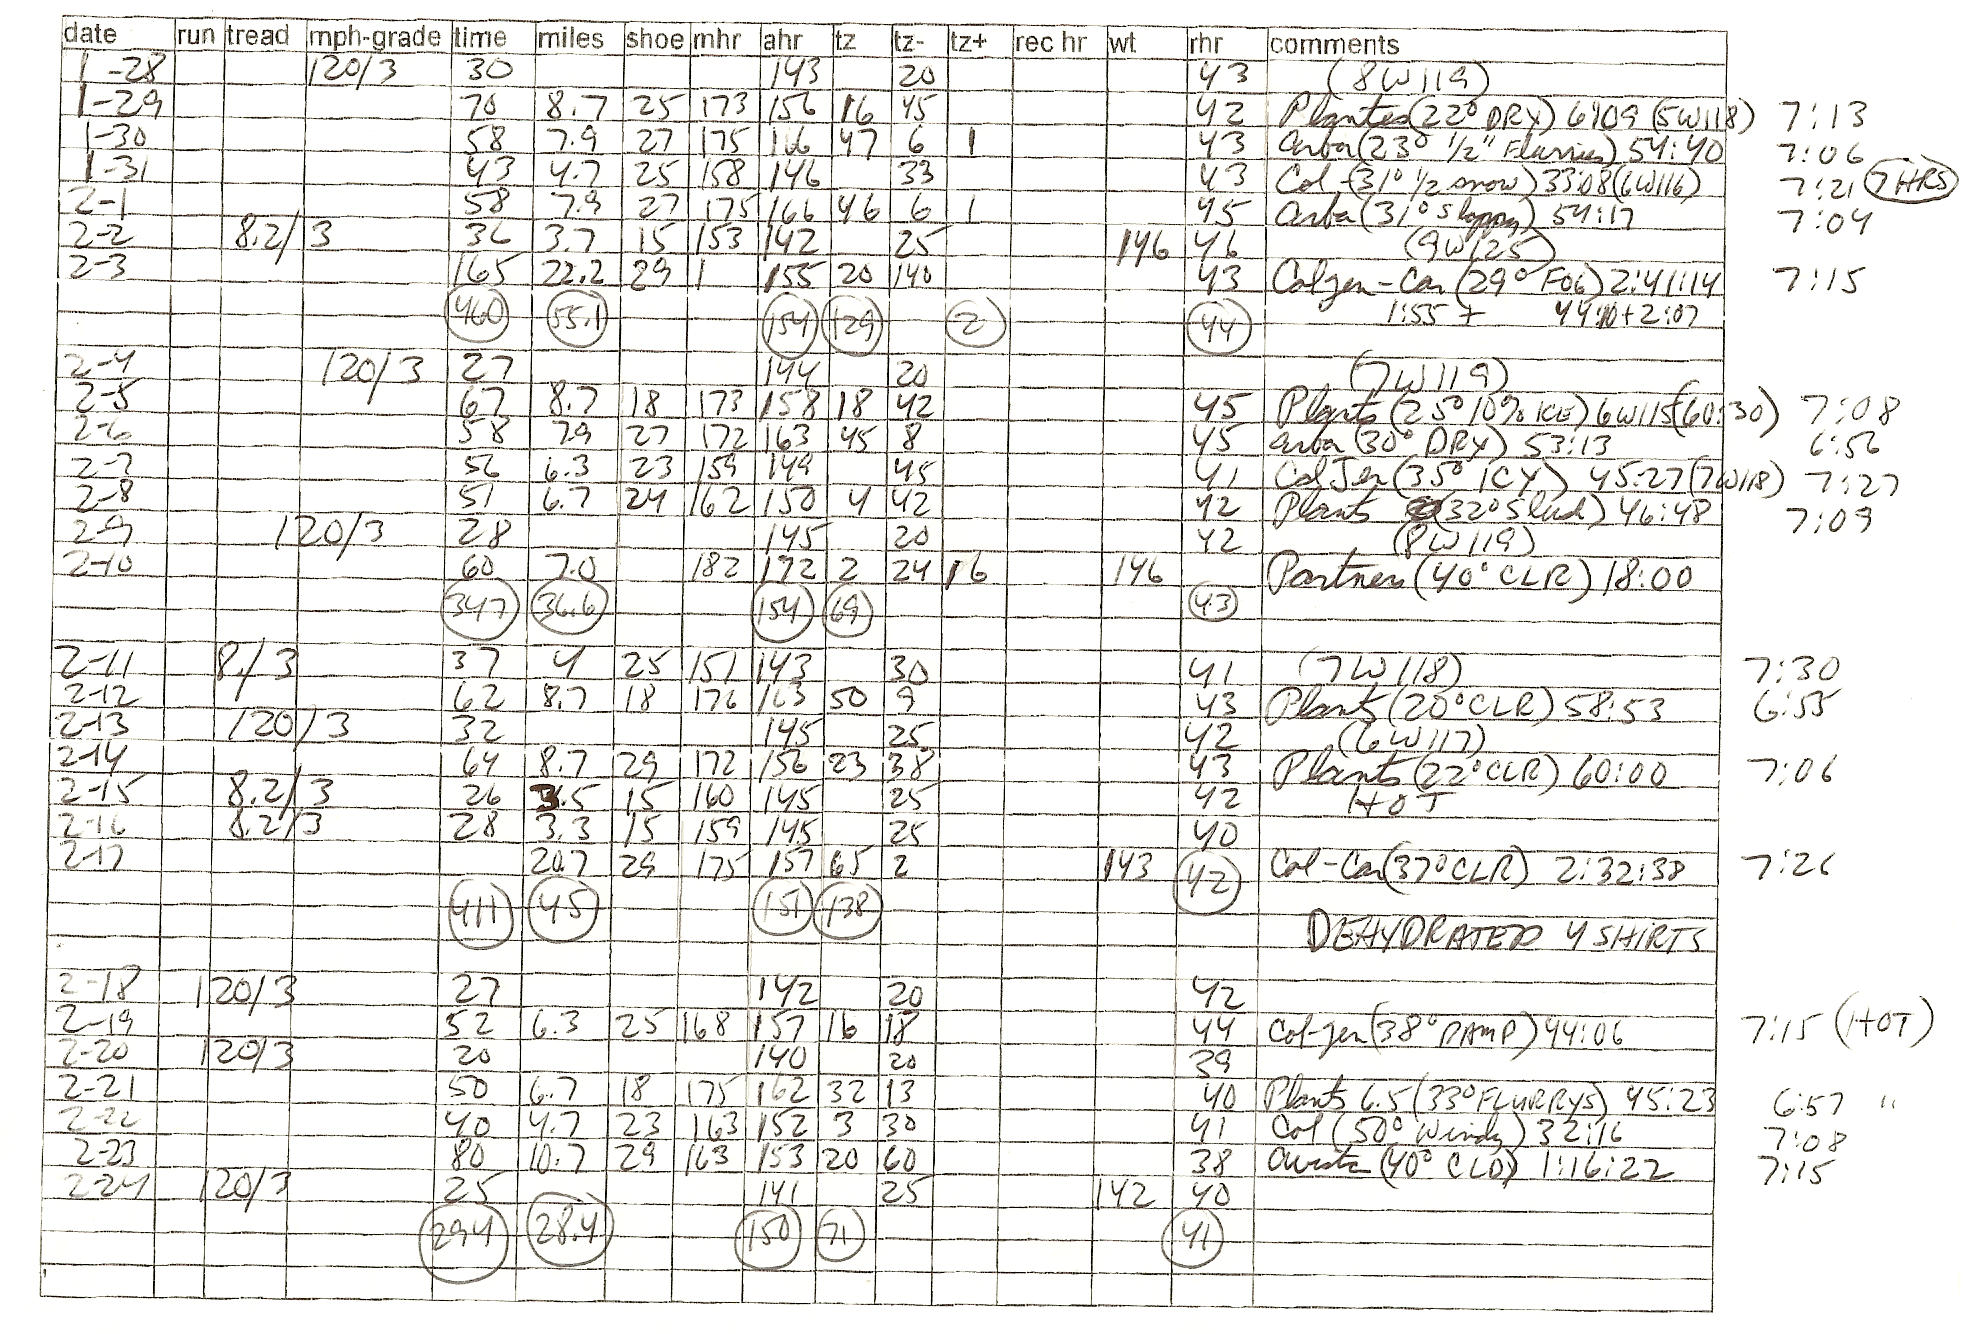 date run tread mph-grade time miles shoe mhr ahr tz tz- tz+ rec hr wt rhr comments
1-28 120/3 30 143 20 43 (8W119)
1-29 70 8.7 25 173 156 16 45 42 Plantes (22° DRY) 61:09 (5W118) 7:13
1-30 58 7.9 27 175 166 47 6 1 43 arba (23° 1/2" Flurries) 54:40 7:06
1-31 43 4.7 25 158 146 33 43 Col (31° 1/2 snow) 33:08 (6W116) 7:21 (7 HRS)
2-1 58 7.9 27 175 166 46 6 1 45 arba (31° sloppy) 54:17 7:04
2-2 8.2/3 36 3.7 15 153 142 25 146 46 (9W125)
2-3 165 22.2 29 1 155 20 140 43 Coljen-Car (29° FOG) 2:41:14 7:15
460 55.1 154 129 2 44 1:55 + 44:10+2:07
2-4 120/3 27 144 20 (7W119)
2-5 67 8.7 18 173 158 18 42 45 Plants (25° 10% ICE) 6W115 (60:30) 7:08
2-6 58 7.9 27 172 163 45 8 45 arba (30° DRY) 53:13 6:56
2-7 56 6.3 23 159 149 45 41 ColJen (35° ICY) 45:27 (7W118) 7:27
2-8 51 6.7 24 162 150 4 42 42 Plants (32° Slush) 46:48 7:09
2-9 120/3 28 145 20 42 (8W119)
2-10 60 7.0 182 172 2 24 16 146 Partners (40° CLR) 18:00
347 36.6 154 69 43
2-11 8./3 37 4 25 151 143 30 41 (7W118) 7:30
2-12 62 8.7 18 176 163 50 9 43 Plants (20° CLR) 58:53 6:55
2-13 120/3 32 145 25 42 (6W117)
2-14 64 8.7 29 172 156 23 38 43 Plants (22° CLR) 60:00 7:06
2-15 8.2/3 26 3.5 15 160 145 25 42 HOT
2-16 8.2/3 28 3.3 15 159 145 25 40
2-17 20.7 29 175 157 65 2 143 42 Col-Car (37° CLR) 2:32:38 7:26
411 45 151 138
DEHYDRATED 4 SHIRTS
2-18 120/3 27 142 20 42
2-19 52 6.3 25 168 157 16 18 44 Col-Jen (38° DAMP) 44:06 7:15 (HOT)
2-20 120/3 20 140 20 39
2-21 50 6.7 18 175 162 32 13 40 Plants 6.5 (33° FLURRYS) 45:23 6:57 "
2-22 40 4.7 23 163 152 3 30 41 Col (50° Windy) 32:16 7:08
2-23 80 10.7 29 163 153 20 60 38 (40° CLDY) 1:16:22 7:15
2-24 120/3 25 141 25 142 40
294 28.4 150 71 41